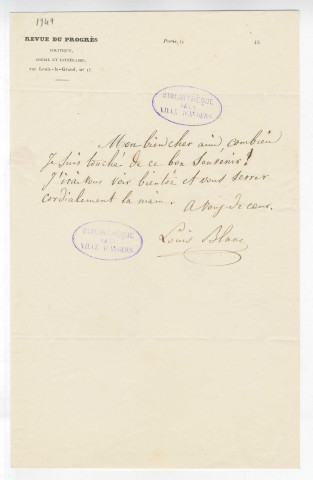 1949
REVUE DU PROGRÈS
POLITIQUE,
SOCIAL ET LITTÉRAIRE,
rue Louis-le-Grand, nº 17.
Paris, le 18
BIBLIOTHÈQUE
DE LA
VILLE D'ANGERS
Mon bien cher ami, combien
je suis touché de ce bon souvenir!
J'irai vous voir bientôt et vous serrer
cordialement la main. A vous de cœur.
Louis Blanc
BIBLIOTHÈQUE
DE LA
VILLE D'ANGERS